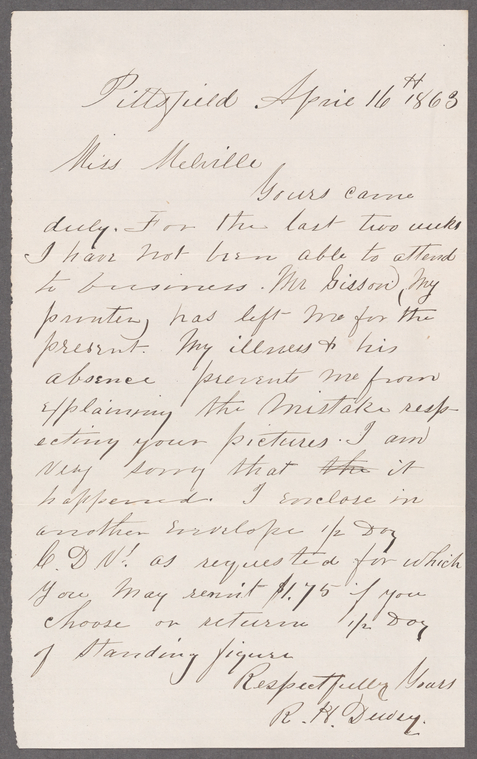 Pittsfield April 16th 1863
Miss Melville
Yours came
duly. For the last two weeks
I have not been able to attend
to business. Mr Sisson, (My
printer) has left me for the
present. My illness & his
absence prevents me from
explaining the mistake resp-
ecting your pictures. I am
very sorry that the it
happened. I enclose in
another envelope 1/2 Doz
C.D.V! as requested for which
you may remit $1.75 if you
choose or return 1/2 Doz
of standing figure
Respectfully Yours
R. H. Dewey.